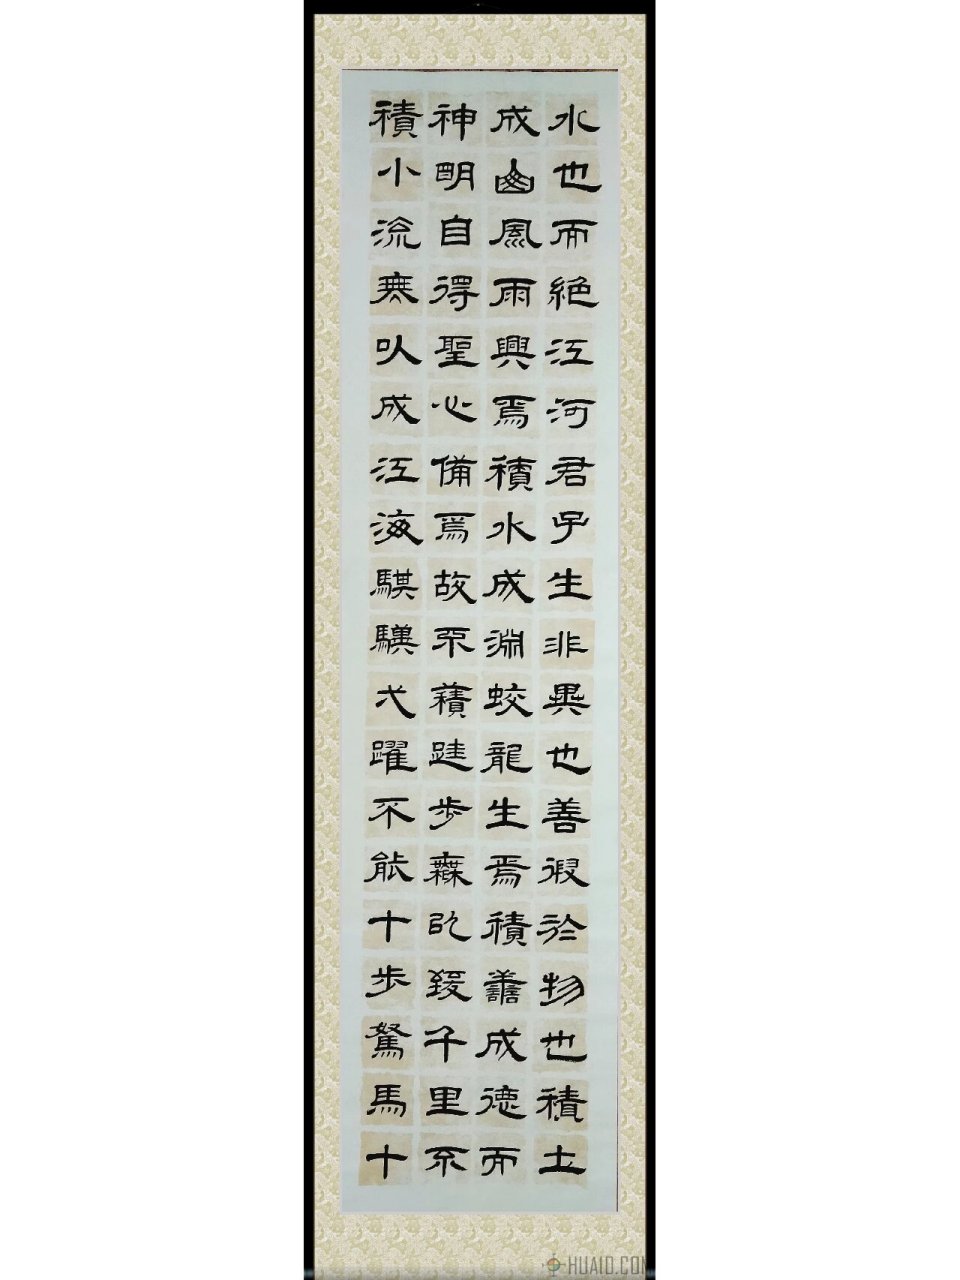 水也而絕江河君子生非異也善假於物也積土
成山風雨興焉積水成淵蛟龍生焉積善成德而
神明自得聖心備焉故不積跬步無以致千里不
積小流無以成江海騏驥弌躍不能十步駑馬十
HUAID.COM